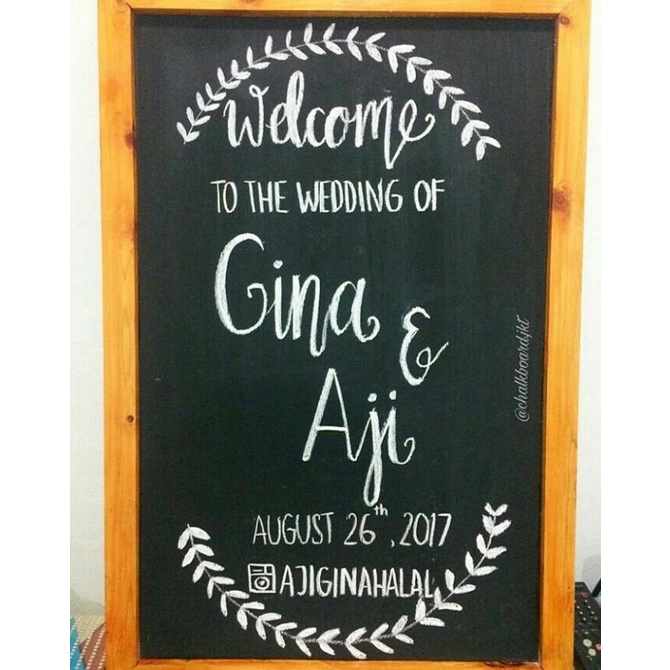 Welcome
TO THE WEDDING OF
Gina
&
Aji
AUGUST 26th, 2017
AJIGINAHALAL
@chalkboardjkt